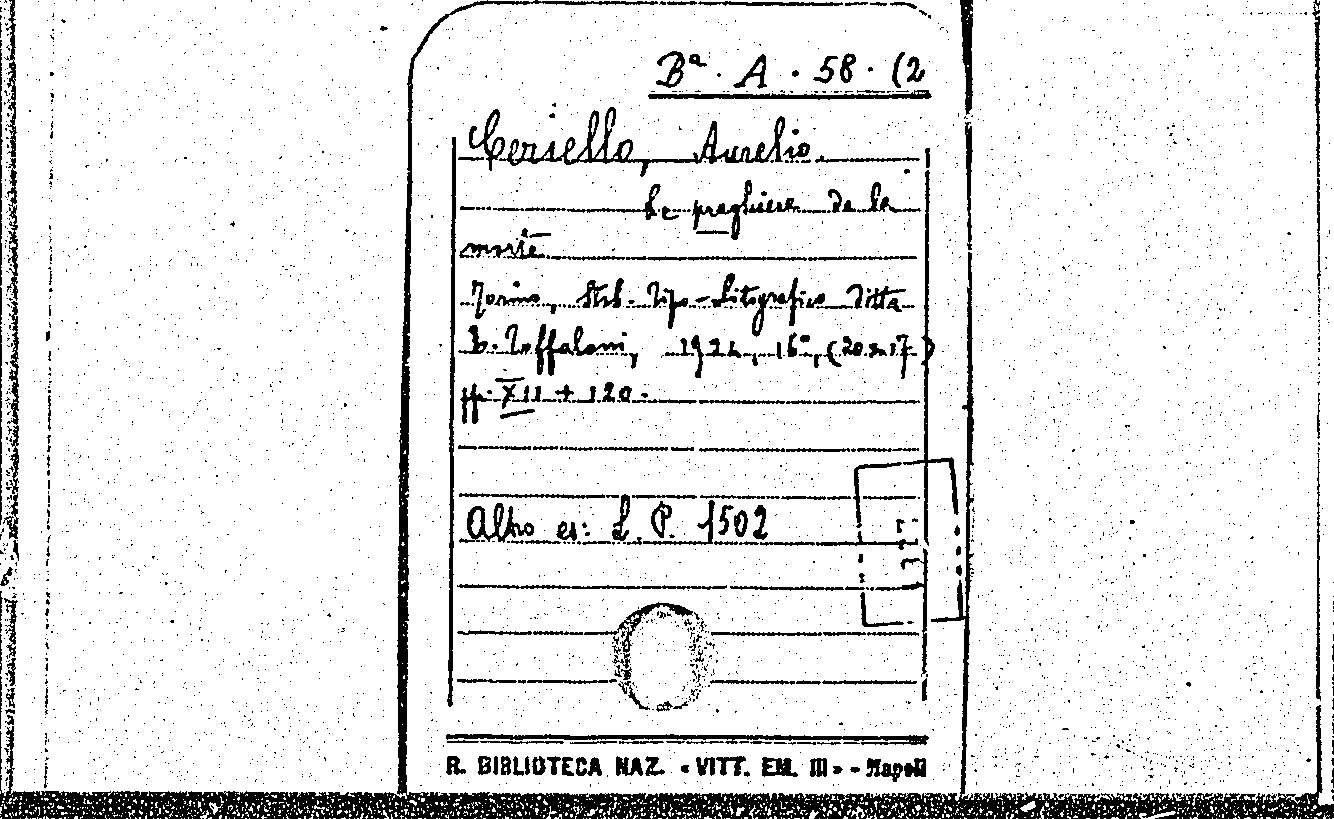 Bª. A. 58. (2
Ceriello, Aurelio.
Le preghiere de la
morte
Torino, Stab. Tipo-Litografico Ditta
E. Toffaloni, 192 , 16°, (20 x 17)
pp. XII + 120.
Altro es: L. P. 1502
R. BIBLIOTECA NAZ. «VITT. EM. III» - Napoli